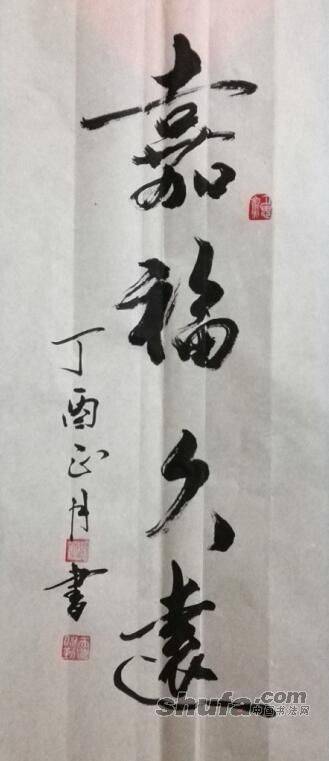 嘉福久遠
丁酉正月書
shufa.com
中国书法网